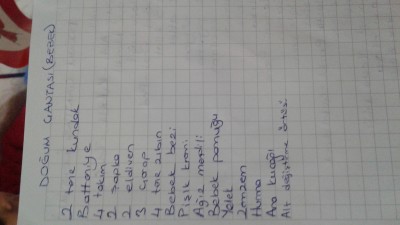 DOĞUM ÇANTASI (BEBEK)
2 tane kundak
Battaniye
4 takım
2 şapka
2 eldiven
3 çorap
4 tane zıbın
Bebek bezi
Pişik kremi
Ağız mendili
Bebek pamuğu
Yelek
Zemzem
Hurma
Ana kucağı
Alt değiştirme örtüsü